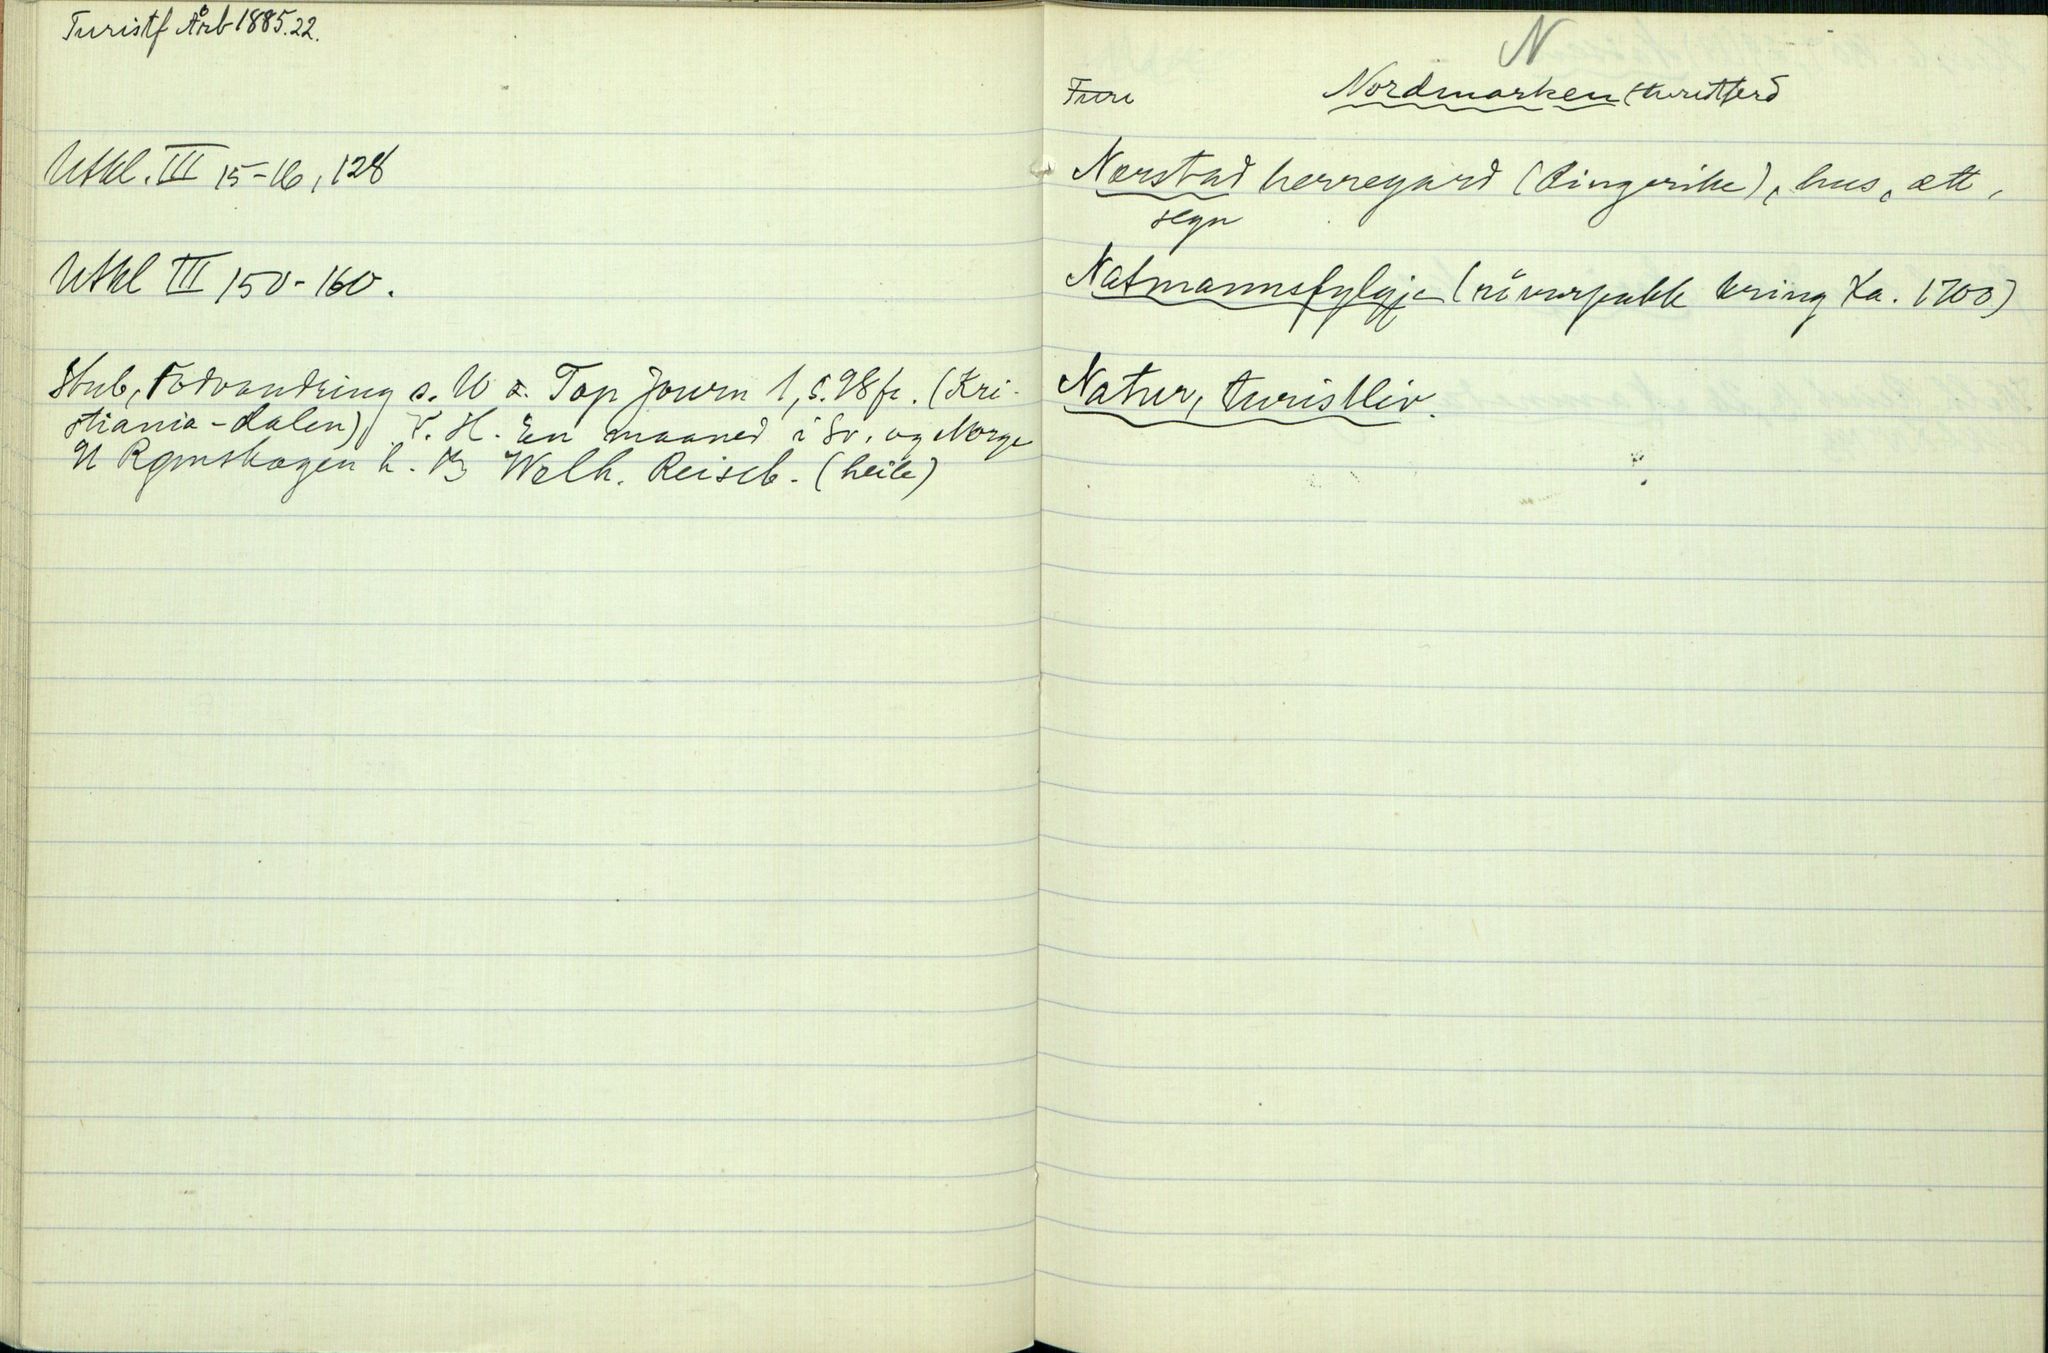 Turistf Årb 1885.22.
Utkl. III 15-16, 128
Utkl III 150-160.
Stub, Fodvandring s. U Top Journ 1, s. 98 fr. (Kri-
stiania-dalen) V. H. En maaned i Sv. og Norge
Welh. Reiseb. (heile)
N
Turi
Nordmarken turistferd
Nærstad herregard (Ringerike), hus, ætt,
segn
Natmannsfylgje (røvarpakk kring ka. 1700)
Natur, turistliv.